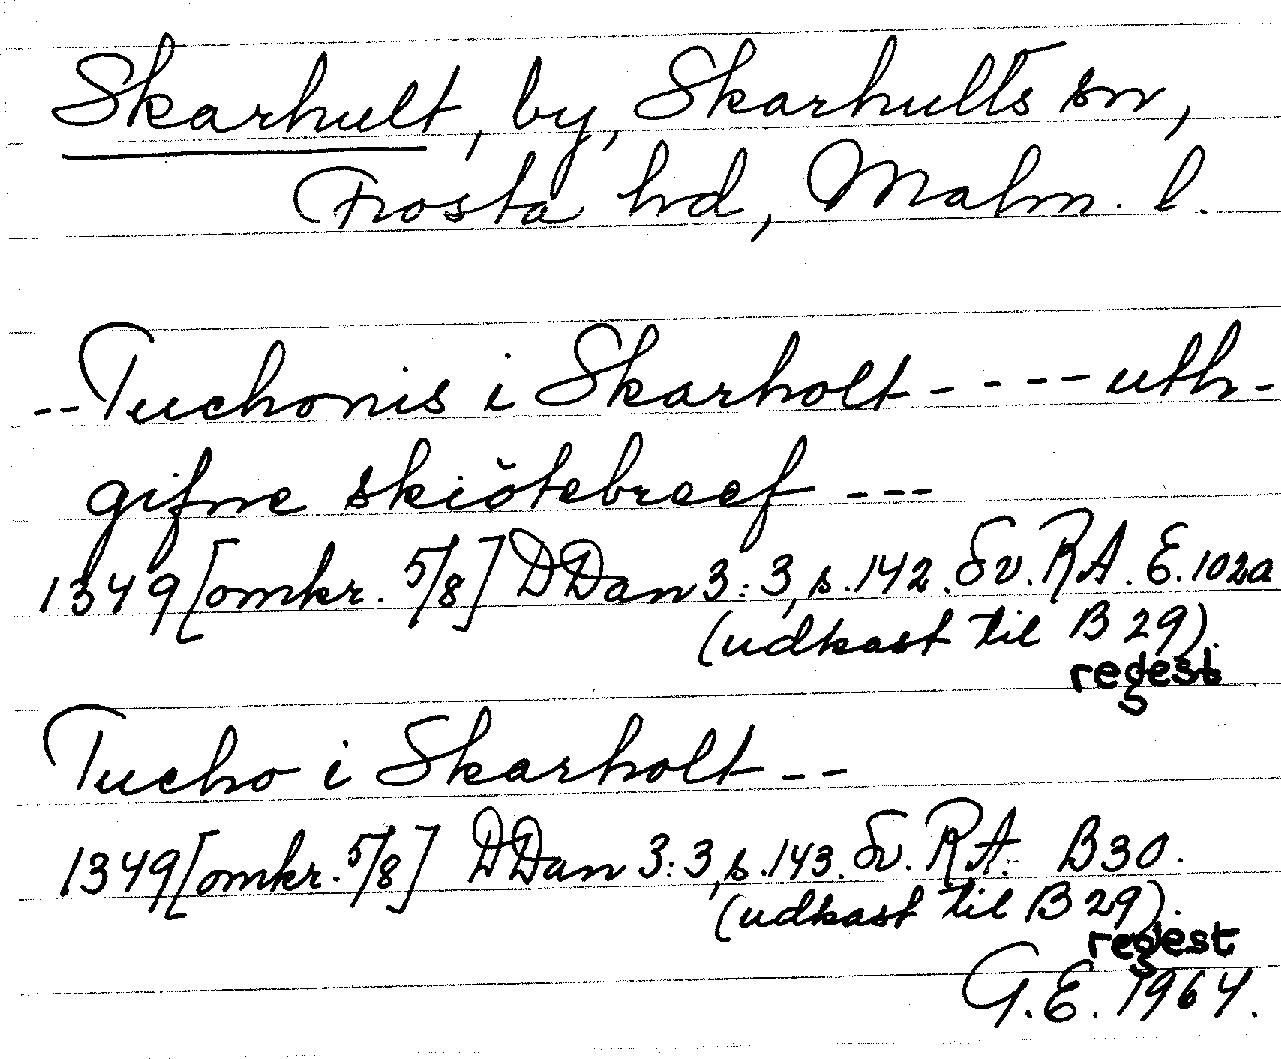 Skarhult, by, Skarhults sn,
Frosta hd, Malm. l.
--Tuchonis i Skarholt----uth-
gifne skiötebreef ---
1349 [omkr. 5/8] DDan 3:3, s.142. Sv. RA. E.102a
(udkast til B 29).
regest
Tucho i Skarholt--
1349 [omkr. 5/8] DDan 3:3, s.143. Sv. RA. B30.
(udkast til B 29).
regest
G.E. 1964.